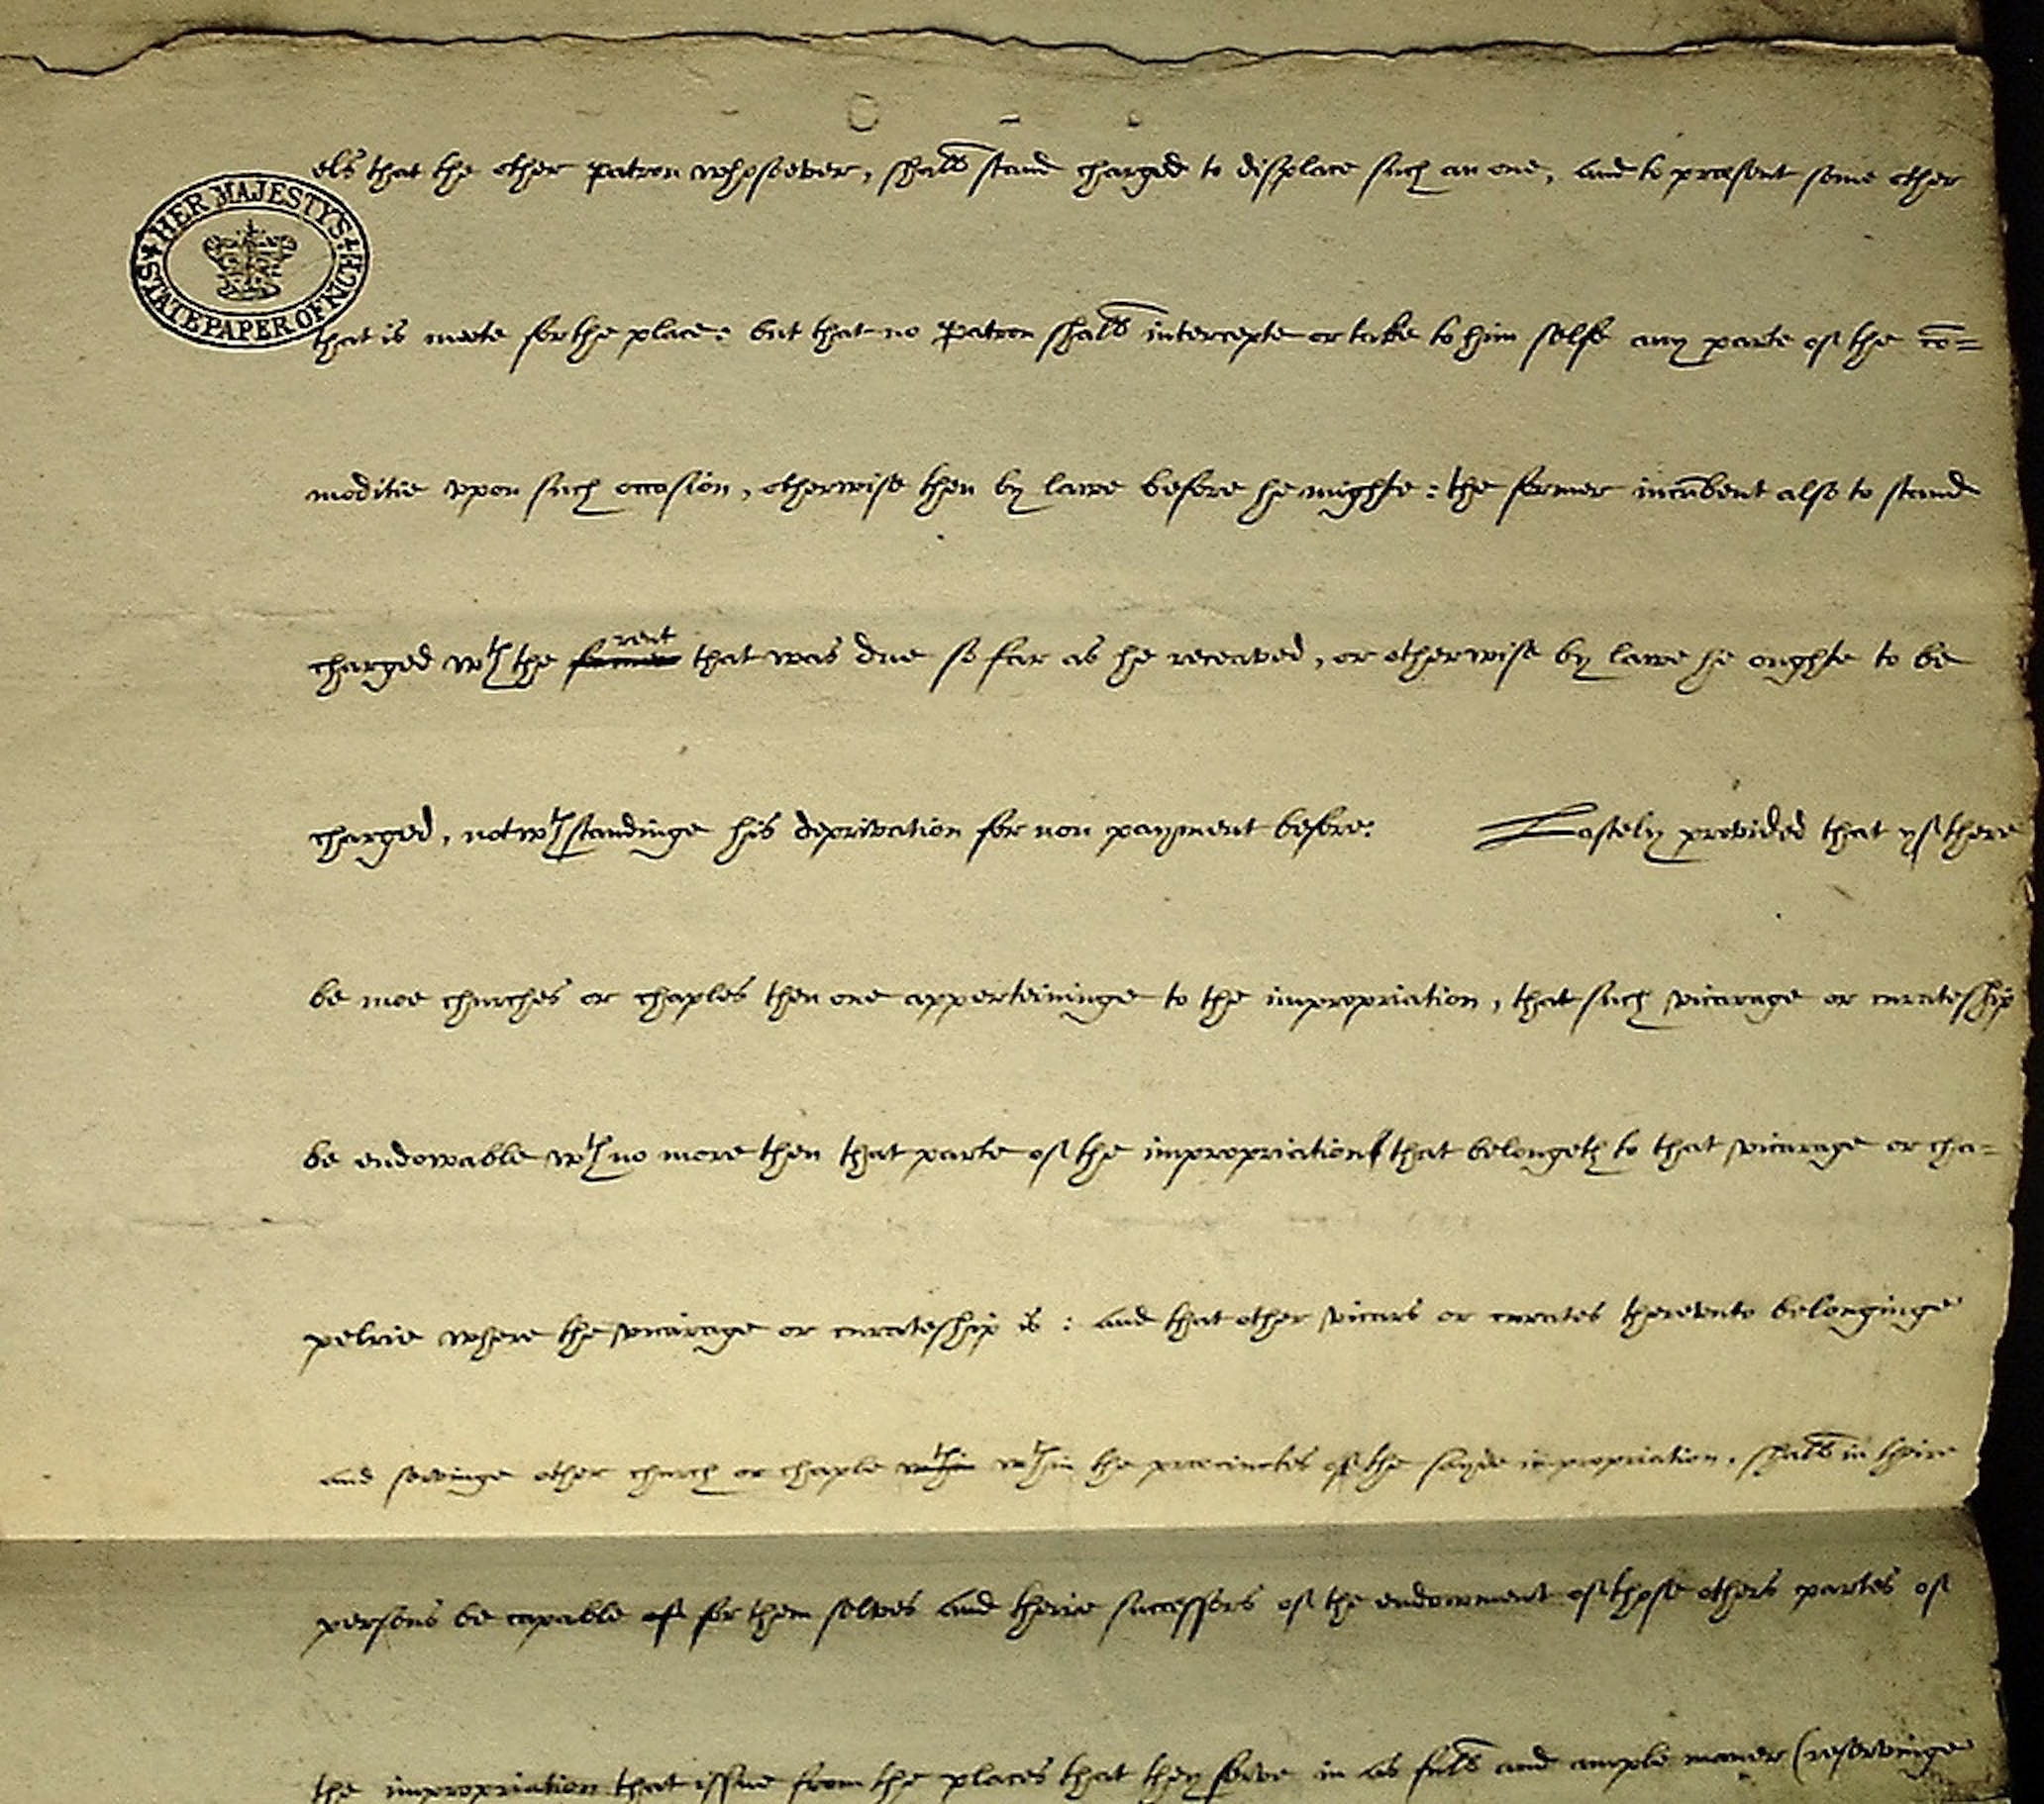 els that the other patron whosoever, shall stand charged to displace such an one, and to præsent some other
HER MAJESTY'S STATE PAPER OFFICE
that is meete for the place: but that no Patron shall intercepte or take to him selfe any parte of the cō=
moditie vpon such occasion, otherwise then by lawe before he mighte: the former incūbent also to stand
charged wth the ~~former~~ rent that was due so far as he receaved, or otherwise by lawe he oughte to be
charged, notwthstandinge his deprivation for non payment before: Lastely provided that yf there
be moe churches or chaples then one apperteininge to the impropriation, that such vicarage or curateship
be endowable wth no more then that parte of the impropriation that belongeth to that vicarage or cha=
pelrie where the vicarage or curateship is: and that other vicars or curates therevnto belonginge
and servinge other church or chaple ~~wthin~~ wthin the præcinctes of the sayde impropriation, shall in theire
persons be capable of for them selves and theire successors of the endowment of those others partes of
the impropriation that issue from the places that they serve in as full and ample maner (reservinge